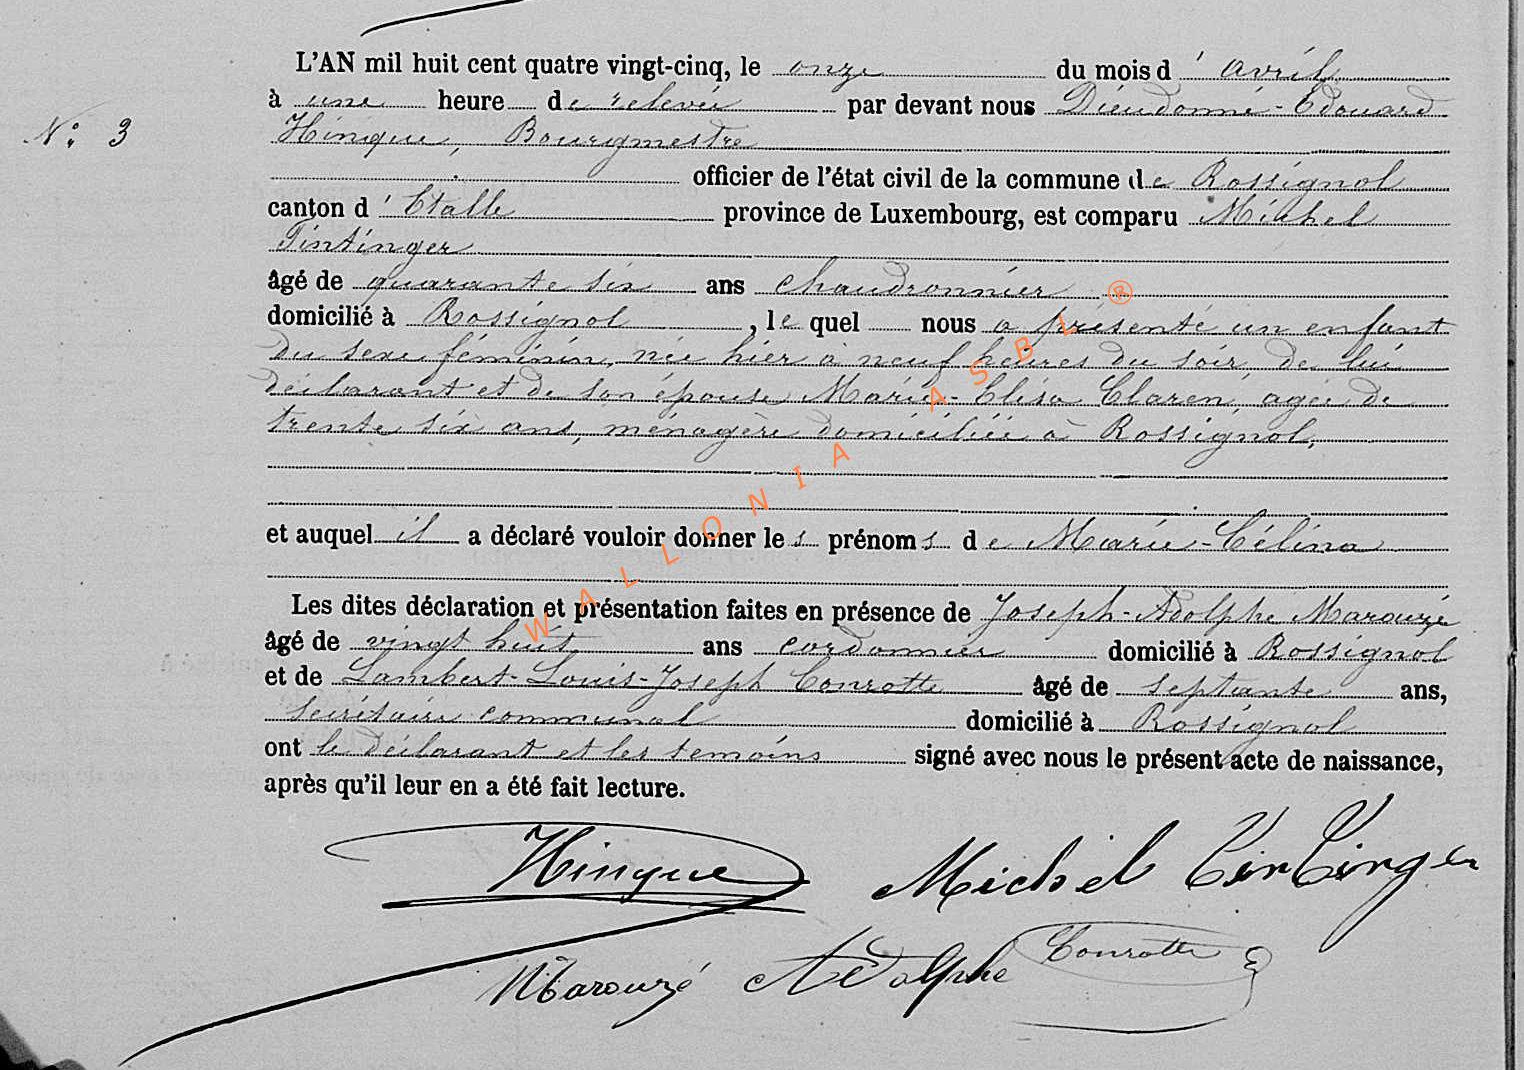 L'AN mil huit cent quatre vingt-cinq, le onze du mois d' avril
à une heure de relevée par devant nous Dieudonné-Edouard
N: 3
Hinque, Bourgmestre
officier de l'état civil de la commune de Rossignol
canton d' Etalle province de Luxembourg, est comparu Michel
Tintinger
âgé de quarante six ans chaudronnier
domicilié à Rossignol, le quel nous a présenté un enfant
du sexe féminin, née hier à neuf heures du soir, de lui
déclarant et de son épouse Marie-Elisa Claren, agée de
trente six ans, ménagère domiciliée à Rossignol,
et auquel il a déclaré vouloir donner les prénoms de Marie-Célina
Les dites déclaration et présentation faites en présence de Joseph-Adolphe Marouzé
âgé de vingt huit ans cordonnier domicilié à Rossignol
et de Lambert-Louis-Joseph Conrotte âgé de septante ans,
secrétaire communal domicilié à Rossignol
ont le déclarant et les temoins signé avec nous le présent acte de naissance,
après qu'il leur en a été fait lecture.
Hinque Michel Tintinger
Marouzé Adolphe Conrotte
WALLONIA ASBL ®